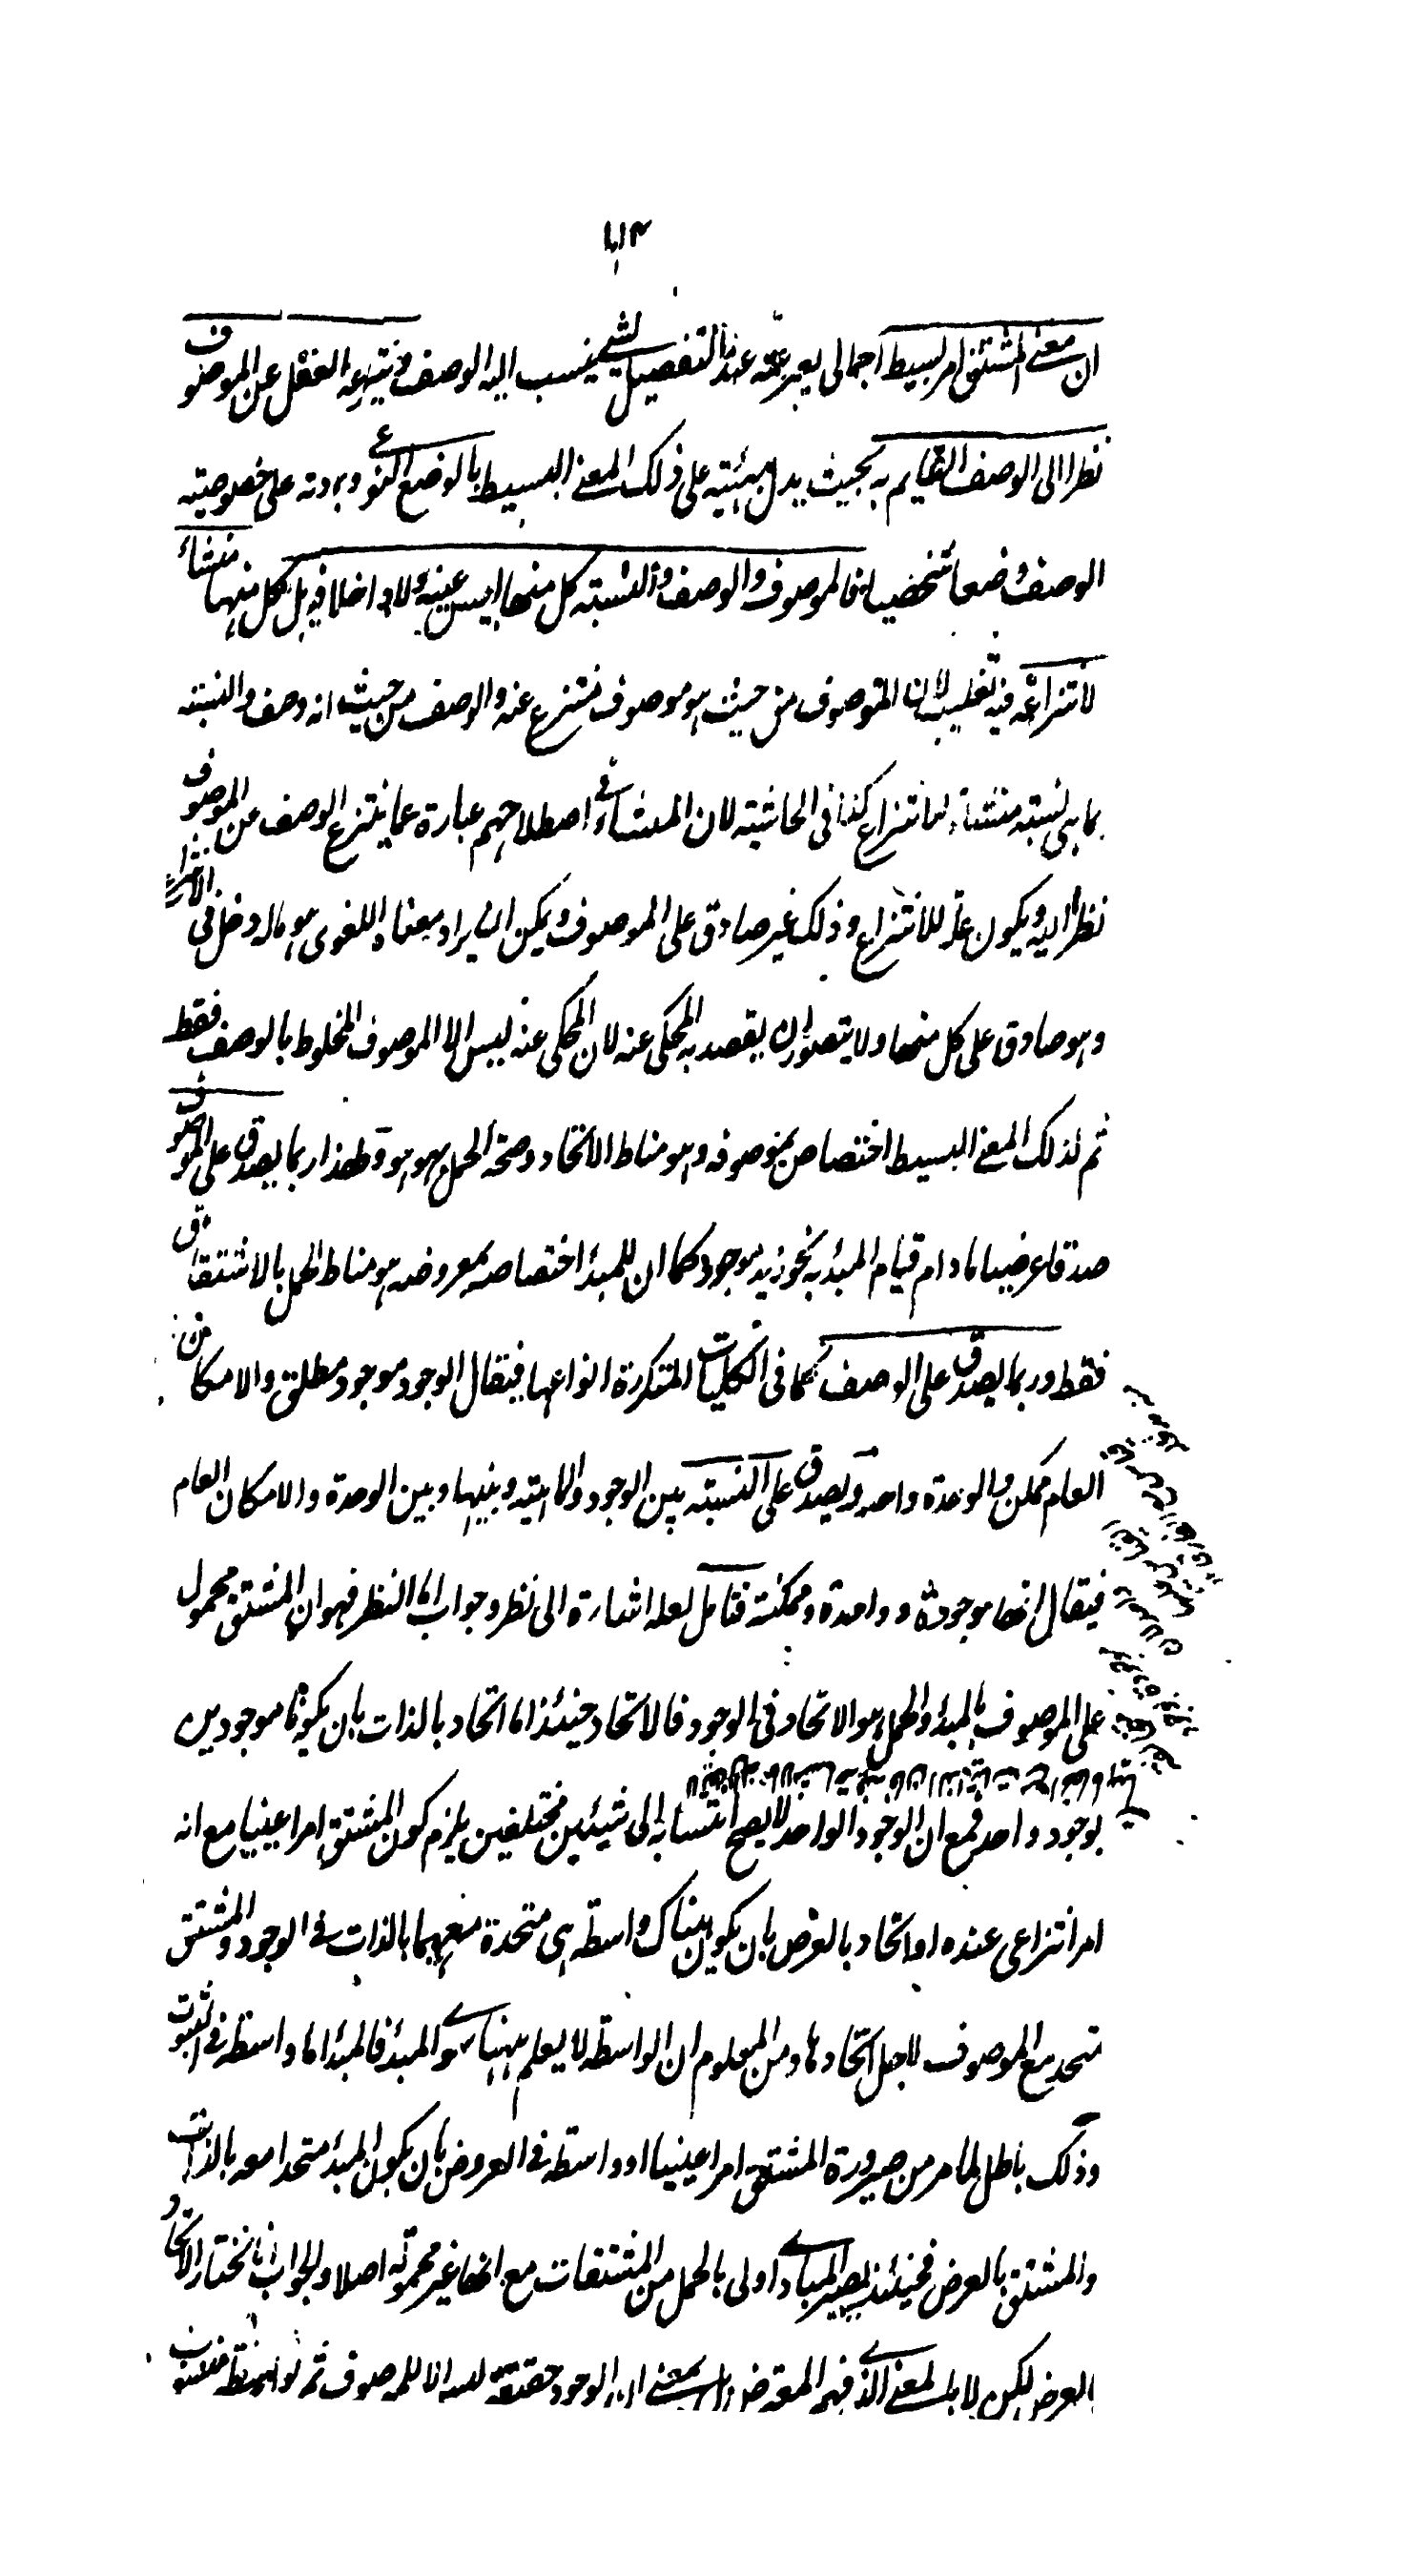 ان معنى المشتق امر بسيط اجمالى يعبر عنه عند التفصيل لشئ ينسب اليه الوصف وينتزعه العقل عن الموصوف
نظرا الى الوصف القايم به بحيث يدل بهيئته على ذلك المعنى البسيط بالوضع النوعى وبمادته على خصوصيته
الوصف وضعا شخصيا فالموصوف والوصف والنسبته كل منها ليس عينه ولا داخلا فيه بل كل منها منشاء
لانتزاعه فيه تغليب لان الموصوف من حيث هو موصوف منتزع عنه والوصف من حيث انه وصف والنسبته
بما هى نسبته منشاء لانتزاع كذا فى الحاشيته لان المنشاء فى اصطلاحهم عبارة عما ينتزع الوصف عن الموصوف
نظرا اليه ويكون علة للانتزاع وذلك غير صادق على الموصوف ويمكن ان يراد بمعناه اللغوى هو ماله دخل فى الانتزاع
وهو صادق على كل منها ولا يتصور ان يقصد به المحكى عنه لان المحكى عنه ليس الا الموصوف المخلوط بالوصف فقط
ثم لذلك المعنى البسيط اختصاص بموصوفه وهو مناط الاتحاد وصحة الحمل بهو هو ولهذا ربما يصدق على الموصوف
صدقا عرضيا مادام قيام المبدء به نحو زيد موجود كما ان للمبدء اختصاصه بمعروضه هو مناط الحمل بالاشتقاق
فقط وربما يصدق على الوصف كما فى الكليات المتكررة انواعها فيقال الوجود موجود مطلق والامكان
العام ممكن والوحدة واحدة ويصدق على النسبته بين الوجود والماهيته وبينها وبين الوحدة والامكان العام
فيقال انها موجودة وواحدة وممكنته فتامل لعله اشارة الى نظر وجواب اما النظر فهو ان المشتق محمول
على الموصوف بالمبدء والحمل هو الاتحاد فى الوجود فالاتحاد حينئذ اما اتحاد بالذات بان يكونا موجودين
بوجود واحد فمع ان الوجود الواحد لا يصح انتسابه الى شيئين مختلفين يلزم كون المشتق امرا عينيا مع انه
امر انتزاعى عنده او اتحاد بالعرض بان يكون هناك واسطة هى متحدة معهما بالذات فى الوجود والمشتق
متحد مع الموصوف لاجل اتحادها ومن المعلوم ان الواسطة لا يعلم ههنا سوى المبدء فالمبدء اما واسطة فى الثبوت
وذلك باطل لما مر من صيرورة المشتق امرا عينيا او واسطة فى العروض بان يكون المبدء متحدا معه بالذات
والمشتق بالعرض فحينئذ يصير المبادى اولى بالحمل من المشتقات مع انها غير محمولة اصلا والجواب انا نختار الاتحاد
بالعرض لكن لا بالمعنى الذى فهم المعترض بل بمعنى ان الوجود حقيقة ليس الا للموصوف ثم